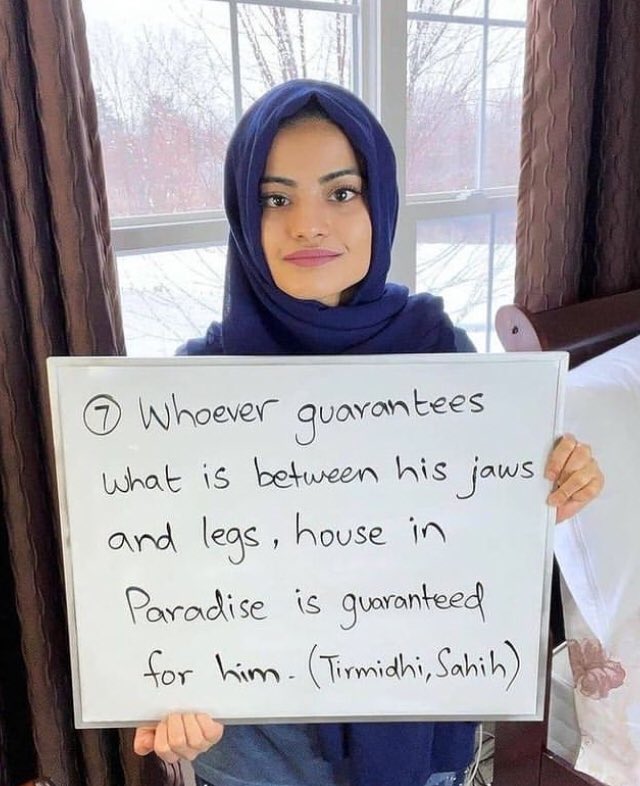 ⑦ Whoever guarantees
what is between his jaws
and legs, house in
Paradise is guaranteed
for him. (Tirmidhi, Sahih)